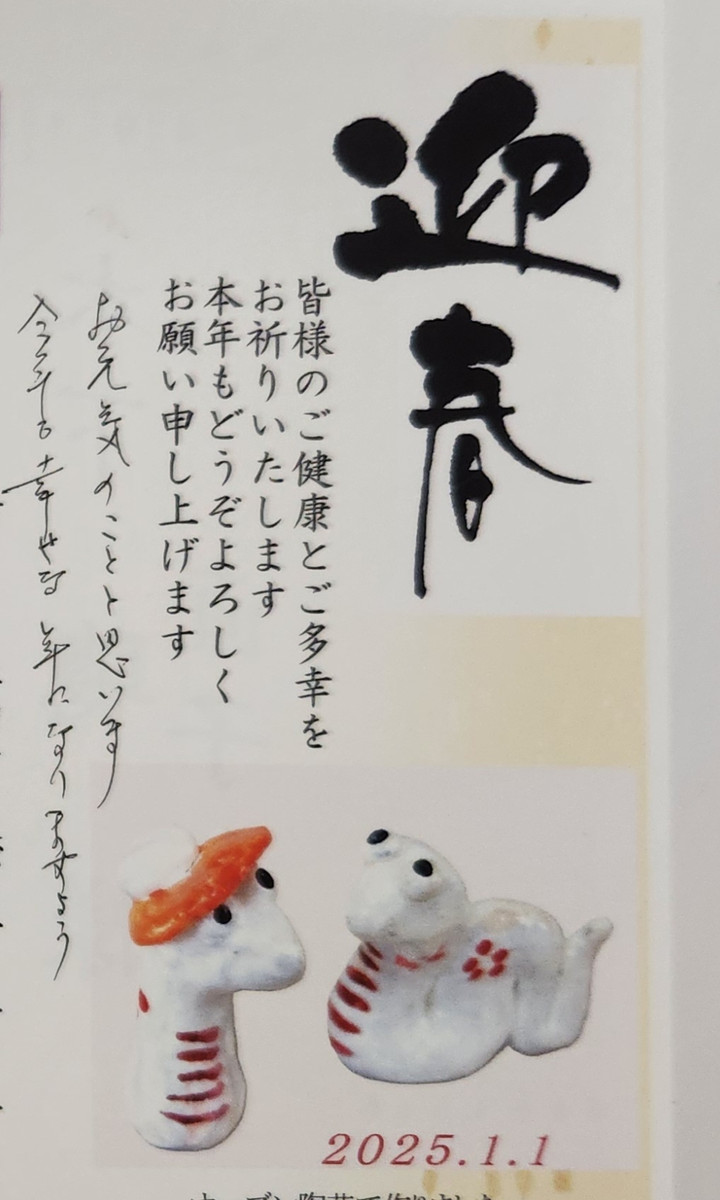 迎春
皆様のご健康とご多幸を
お祈りいたします
本年もどうぞよろしく
お願い申し上げます
お元気のことと思います
今年も幸せな年になりますよう
2025.1.1